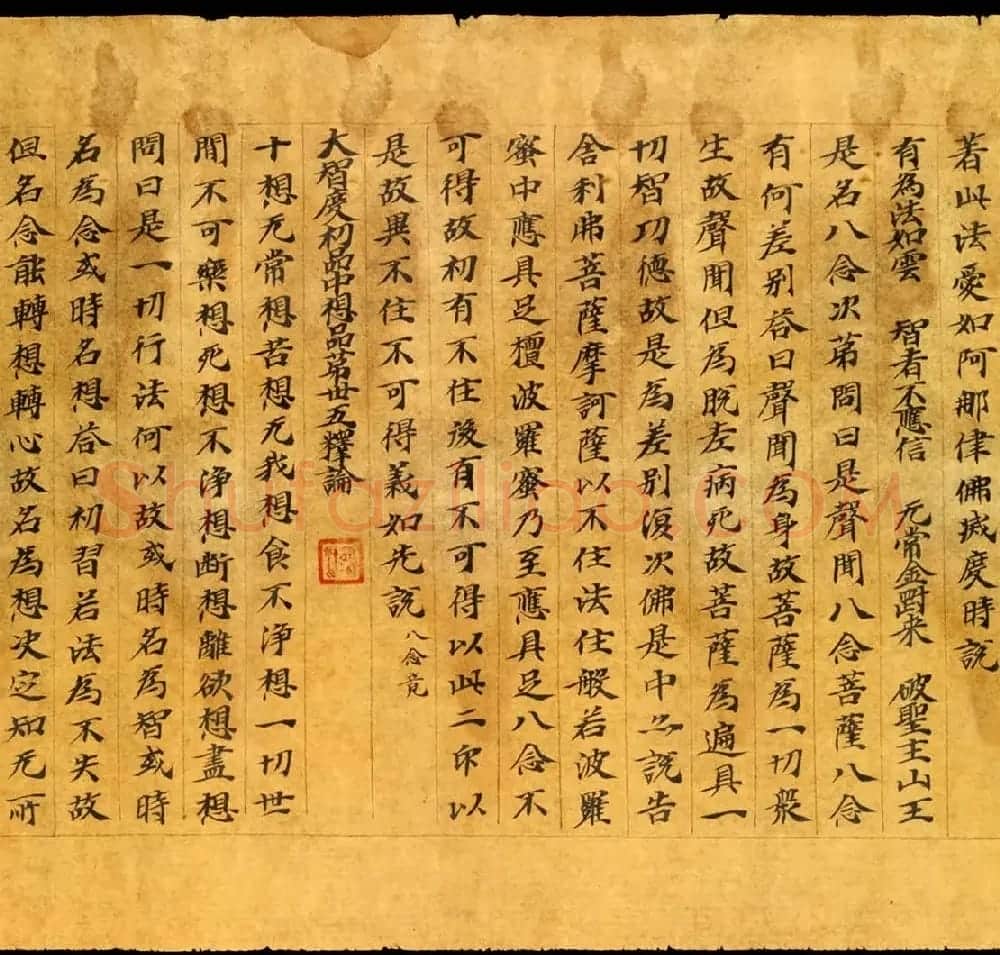 著此法愛如阿那律佛滅度時說
有為法如雲 智者不應信 无常金剛来 破聖主山王
是名八念次第問曰是聲聞八念菩薩八念
有何差别答曰聲聞為身故菩薩為一切衆
生故聲聞但為脱老病死故菩薩為遍具一
切智功德故是為差别復次佛是中亦說告
舍利弗菩薩摩訶薩以不住法住般若波羅
蜜中應具足檀波羅蜜乃至應具足八念不
可得故初有不住後有不可得以此二印以
是故異不住不可得義如先說 八念竟
大智度初品中想品第卅五釋論
十想无常想苦想无我想食不淨想一切世
間不可樂想死想不淨想断想離欲想盡想
問曰是一切行法何以故或時名為智或時
名為念或時名想答曰初習若法為不失故
但名念能轉想轉心故名為想决定知无所
Shufaziliao.com